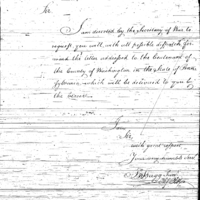 Sir,
I am directed by the Secretary of War to
request you will, with all possible dispatch for-
ward the letter addressed to the Lieutenant of
the County of Washington in the State of Penn-
sylvania, which will be delivered to you by
the bearer.
I am
Sir,
with great respect
Your very humble servt